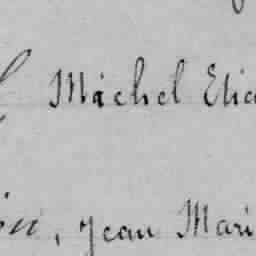 Michel Elie
in, Jean Mari